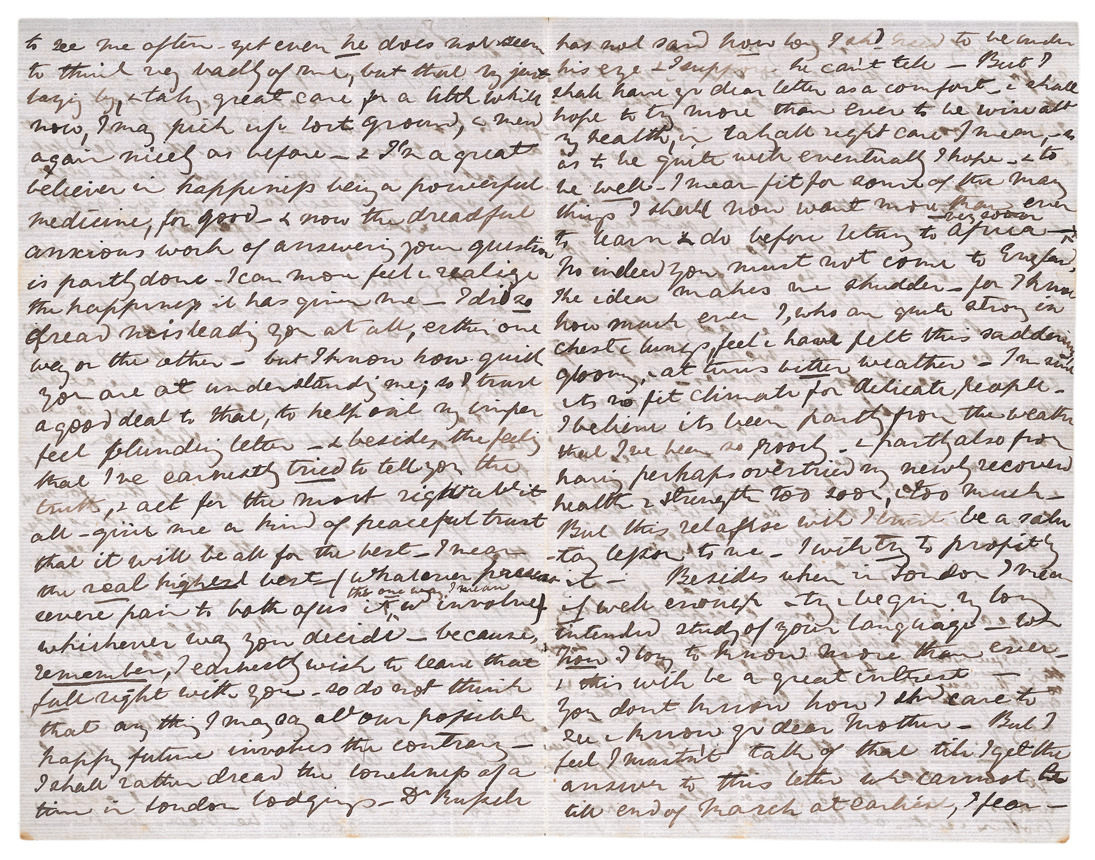 to see me often - yet even he does not seem
to think very badly of me, but that by just
laying by, & taking great care for a little while
now, I may pick up lost ground, & mend
again nicely as before - & I'm a great
believer in happiness being a powerful
medicine, for good - & now the dreadful
anxious work of answering your question
is partly done - I can more feel & realize
the happiness it has given me - I did so
dread misleading you at all, either one
way or the other - but I know how quick
you are at understanding me; so I trust
a good deal to that, to help out my imper
fect blundering letter - & besides the feeling
that I've earnestly tried to tell you the
truth, & act for the most right about it
all - give me a kind of peaceful trust
that it will be all for the best - I mean
the real highest best - (whatever present
severe pain to both of us it, the one way, I mean, wd involve)
whichever way you decide - because,
remember, I earnestly wish to leave that
full right with you - so do not think
that any thing I may say about our possible
happy future involves the contrary -
I shall rather dread the loneliness of a
time in London lodgings - Dr
has not said how long I shd need to be under
his eye & I suppose he can't tell - But I
shall have yr dear letter as a comfort - & shall
hope to try more than ever to be wise abt
my health, in taking all right care I mean, - so
as to be quite well eventually I hope - & to
be well - I mean fit for some of the many
things I should now want more than ever
to learn & do before returning to Africa - very soon
No indeed you must not come to England,
the idea makes me shudder - for I know
how much even I, who am quite strong in
chest & lungs, feel & have felt this saddening
gloomy, & at times bitter weather - I'm sure
its no fit climate for delicate people -
I believe its been partly from the weather
that I've been so poorly - & partly also from
having perhaps overtried my newly recovered
health & strength too soon, & too much -
But this relapse will I trust be a salu
tary lesson to me - I will try to profit by
it - Besides when in London I mean
if well enough - to try & begin my long
intended study of your language - wh
how I long to know more than ever -
& this will be a great interest -
You dont know how I shd care to
see & know yr dear Mother - But I
feel I mustn't talk of that till I get the
answer to this letter wh cannot be
till end of March at earliest, I fear -